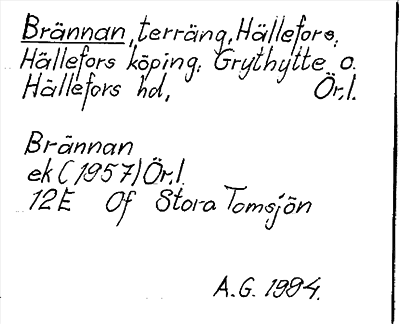 Brännan, terräng, Hällefors,
Hällefors köping. Grythytte o.
Hällefors hd, Ör.l.
Brännan
ek (1957) Ör.l.
12E 0f Stora Tomsjön
A.G. 1994.